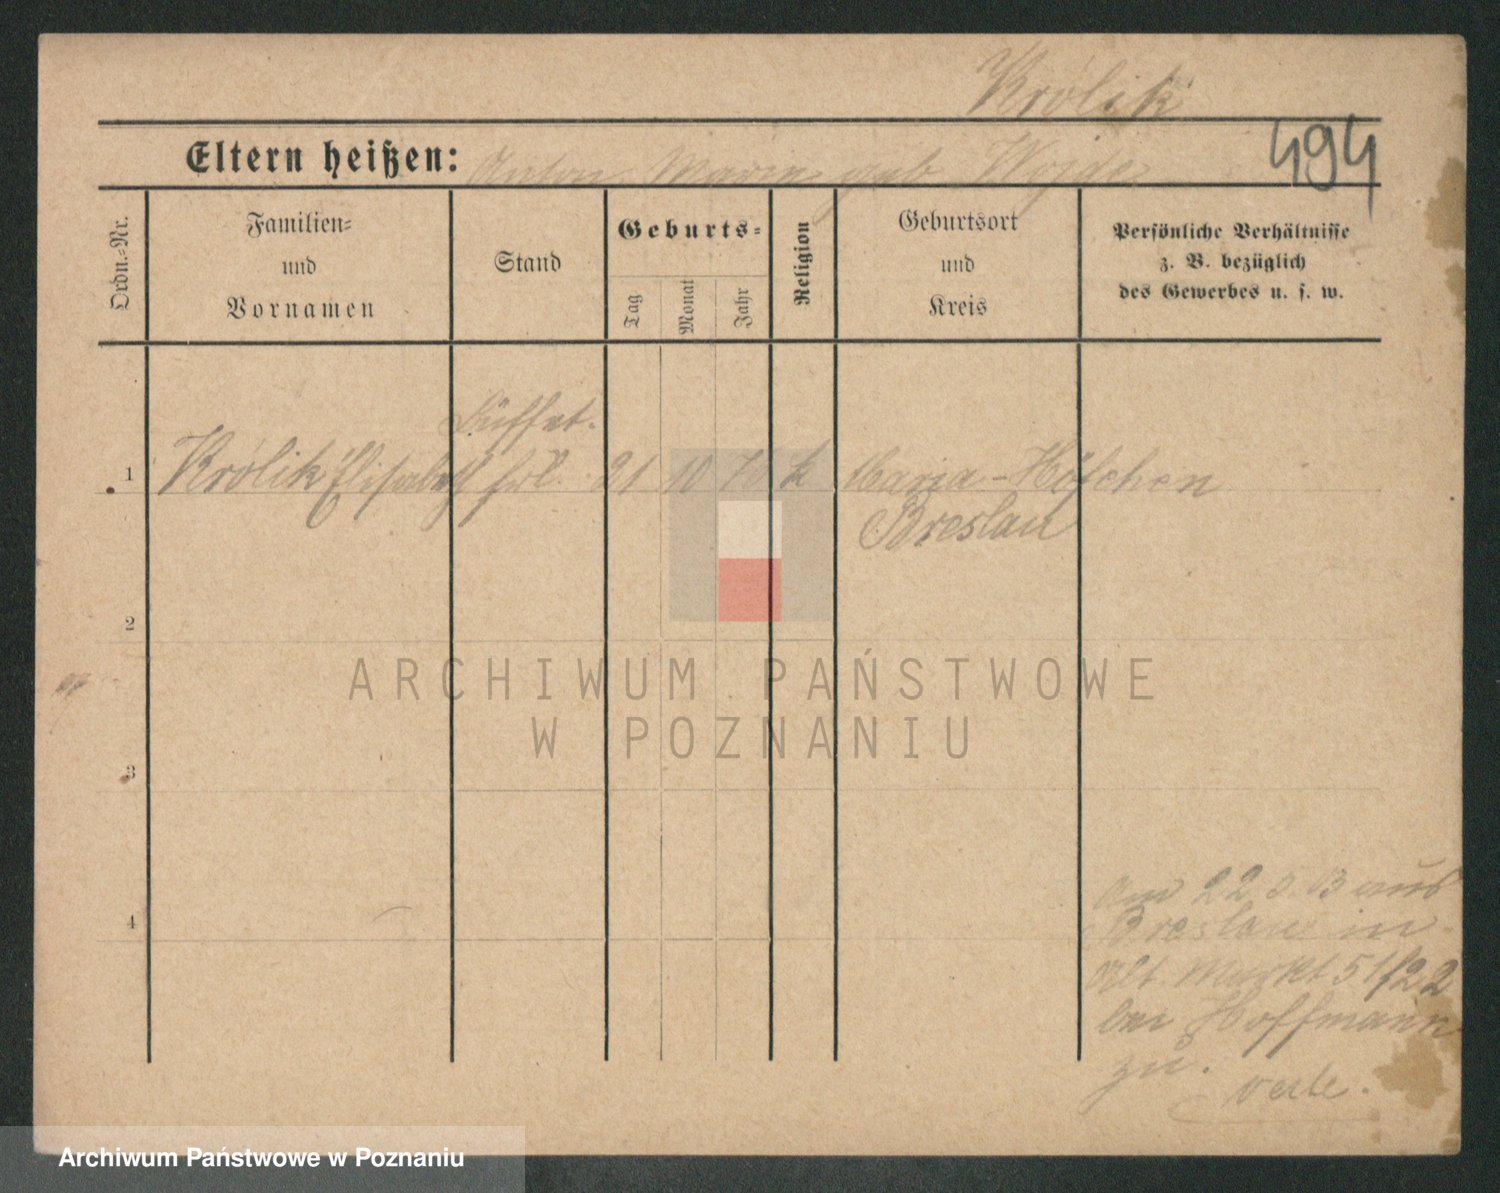 Królik
494
Eltern heißen: Anton Maria geb. Wojde
Ordn.-Nr.
Familien-
und
Vornamen
Stand
Geburts-
Tag
Monat
Jahr
Religion
Geburtsort
und
Kreis
Persönliche Verhältnisse
z. B. bezüglich
des Gewerbes u. s. w.
Büffet.
1 Królik Elisabeth frl. 21 10 70 k Maria-Höfchen
Breslau
2
ARCHIWUM PAŃSTWOWE
W POZNANIU
3
4
Am 22 aus
Breslau in
Alt. Markt 51/22
bei Hoffmann
zu.
Archiwum Państwowe w Poznaniu